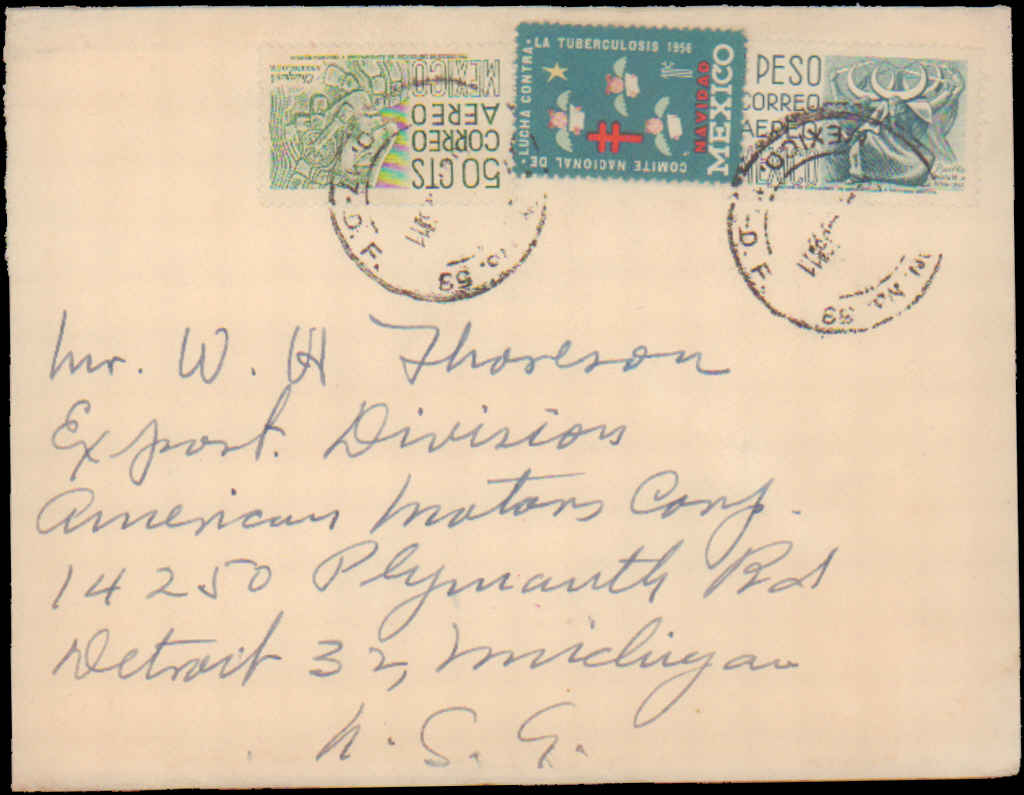 50 CTS
CORREO
AEREO
MEXICO
COMITE NACIONAL DE · LUCHA CONTRA · LA TUBERCULOSIS 1956
NAVIDAD
MEXICO
PESO
CORREO
AEREO
MEXICO
D. F.
53
MEXICO
D. F.
No. 53
Mr. W. H Thoreson
Export. Division
American Motors Corp.
14250 Plymouth Rd
Detroit 32, Michigan
U. S. A.